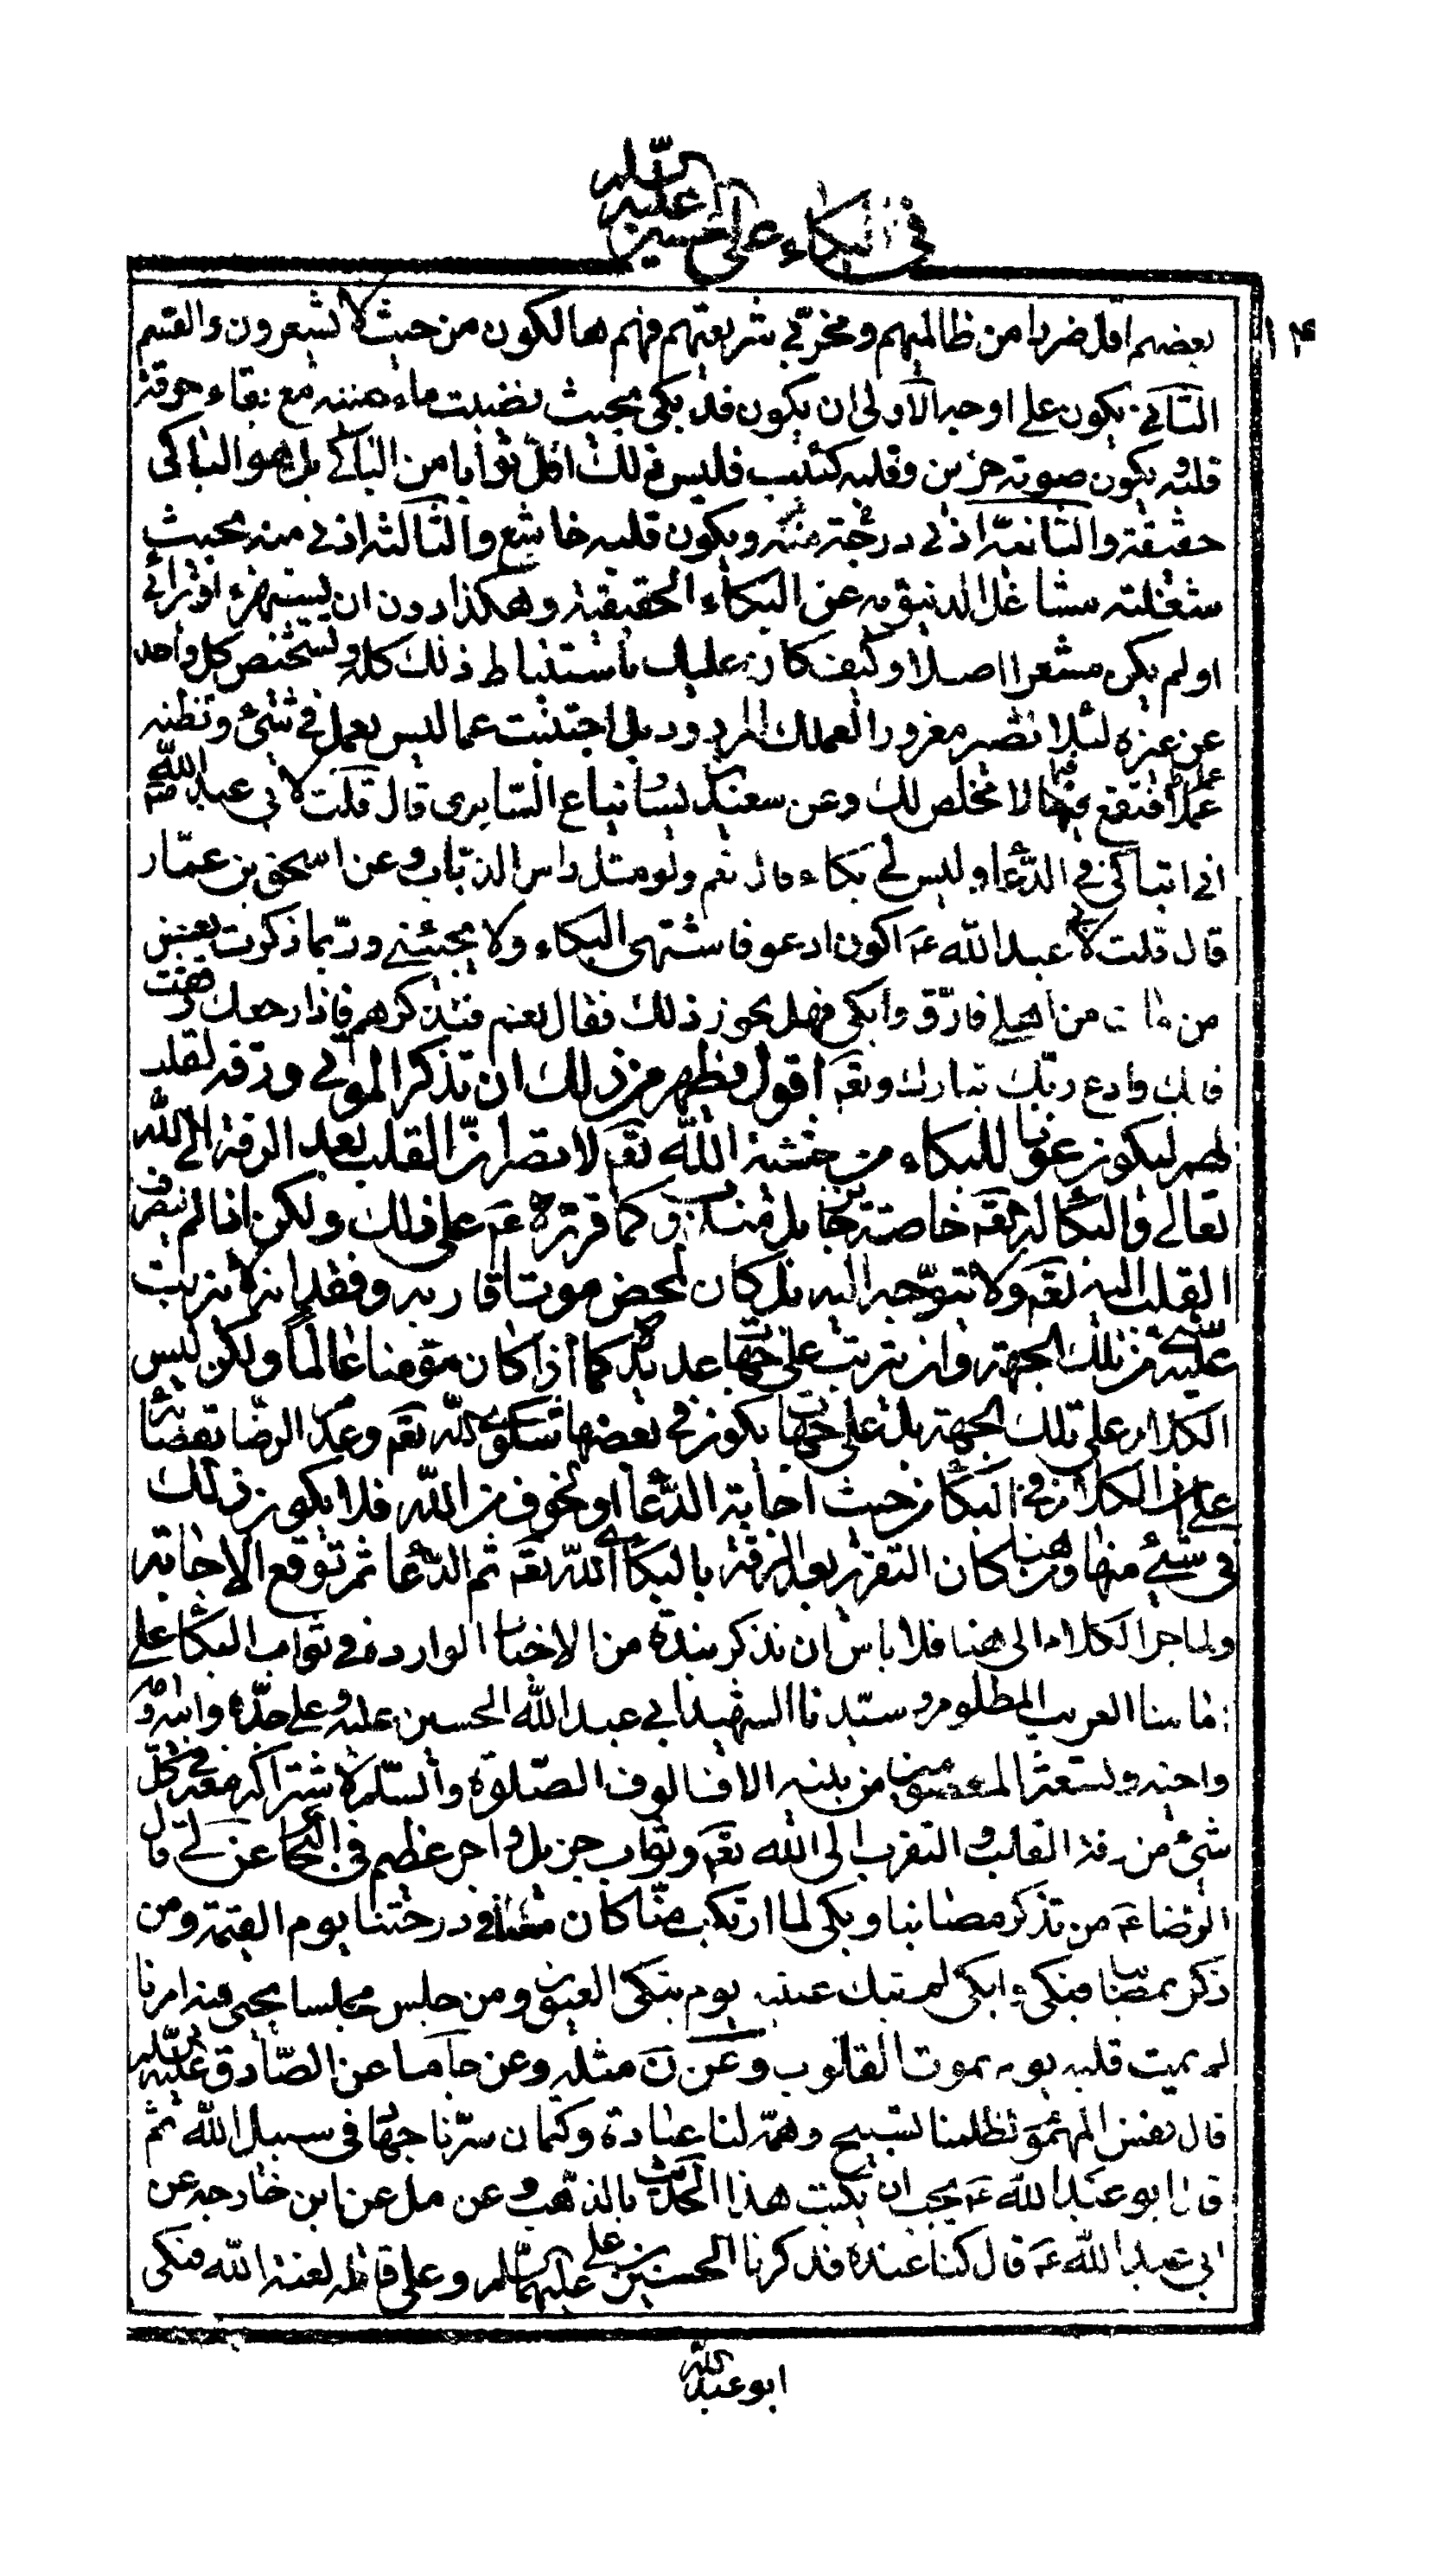 في البكاء على الحسين عليه السلام
١٤
بعضهم اقل ضررا من ظالميهم ومخرّبي شريعتهم فهم هالكون من حيث لا يشعرون والقسم
الثاني يكون على اوجه الاولى ان يكون قد بكى بحيث نضبت ماء عينيه مع بقاء حرقة
قلبه ويكون صوته حزين وقلبه كئيب فليس ذلك اقل ثوابا من الباكي بل هو الباكي
حقيقة والثانية ادنى درجة منه ويكون قلبه خاشع والثالثة ادنى منه بحيث
شغلته مشاغل الدنيوية عن البكاء الحقيقية وهكذا دون ان يستهزء او يرائي
او لم يكن مشعرا اصلا وكيف كان عليك باستنباط ذلك كله وتشخيص كل واحد
عن غيره لئلا تصير مغرورا لعملك المردود بل اجتنبت عما ليس بعمل في شئ وتظنه
عملا فتقع فيما لا مخلص لك وعن سعيد بن يسار بياع السابري قال قلت لابي عبد الله ع
اني اتباكى في الدعاء وليس لي بكاء قال نعم ولو مثل راس الذباب وعن اسحق بن عمّار
قال قلت لابي عبد الله ع اكون ادعو فاشتهى البكاء ولا يجيئني وربّما ذكرت بعض
من مات من اهلي فارقّ وابكي فهل يجوز ذلك فقال نعم فتذكرهم فاذا رققت
فابك وادع ربّك تبارك وتعه اقول فظهر من ذلك ان تذكر الموتى ورقة القلب
لهم ليكون عونا للبكاء من خشية الله تعه لانصراف القلب بعد الرقة الى الله
تعالى والبكاء له تعه خاصة جايز بل مندوب كما قرره ع على ذلك ولكن اذا لم ينصرف
القلب اليه تعه ولا يتوجه اليه بل كان لمحض موت اقاربه وفقدانه لا يترتب
عليه شئ من تلك الجهة وان يترتب على جهات عديدة كما اذا كان مؤمنا عالما ولكن ليس
الكلام على تلك الجهة بل على جهات يكون في بعضها شكوى لله تعه وعدم الرضا بقضائه
على ان الكلام في البكاء من حيث اجابة الدعاء او الخوف من الله فلا يكون ذلك
في شئ منها وهنا كان التقرير بعد الرقة بالبكاء الى الله تعه ثم الدعا ثم توقع الاجابة
ولما جرا الكلام الى هنا فلا باس ان نذكر نبذة من الاخبار الواردة في ثواب البكاء على
امامنا الغريب المظلوم وسيّدنا الشهيد ابي عبد الله الحسين عليه وعلى جدّه وابيه وامه
واخيه والتسعة المعصومين من بنيه الاف الوف الصلوة والسلام لاشتراكه معه في كل
شئ من رقة القلب والتقرب الى الله تعه وثواب جزيل واجر عظيم في البكاء عن لى قال
الرضا ع من تذكر مصابنا وبكى لما ارتكب منّا كان معنا في درجتنا يوم القيمة ومن
ذكر بمصابنا فبكى وابكى لم تبك عينه يوم تبكى العيون ومن جلس مجلسا يحيى فيه امرنا
لم يمت قلبه يوم يموت القلوب وعن ن مثله وعن جا ما عن الصّادق عليه السلام
قال نفس المهموم لظلمنا تسبيح وهمّه لنا عبادة وكتمان سرّنا جهاد في سبيل الله ثم
قال ابو عبد الله ع يجب ان يكتب هذا الحديث بالذهب وعن مل عن ابن خارجه عن
ابي عبد الله ع قال كنا عنده فذكرنا الحسين بن علي عليهما السلام وعلى قاتله لعنة الله فبكى
ابو عبد الله